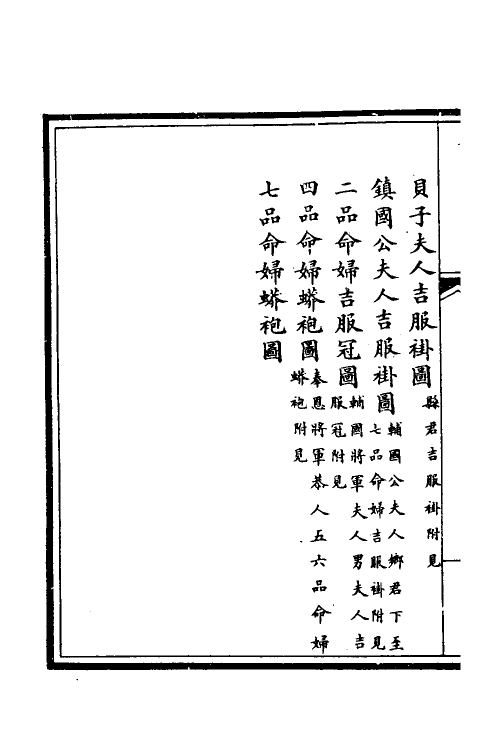 貝子夫人吉服褂圖
縣君吉服褂附見
鎮國公夫人吉服褂圖
輔國公夫人鄉君下至
七品命婦吉服褂附見
二品命婦吉服冠圖
輔國將軍夫人男夫人吉
服冠附見
四品命婦蟒袍圖
奉恩將軍恭人五六品命婦
蟒袍附見
七品命婦蟒袍圖